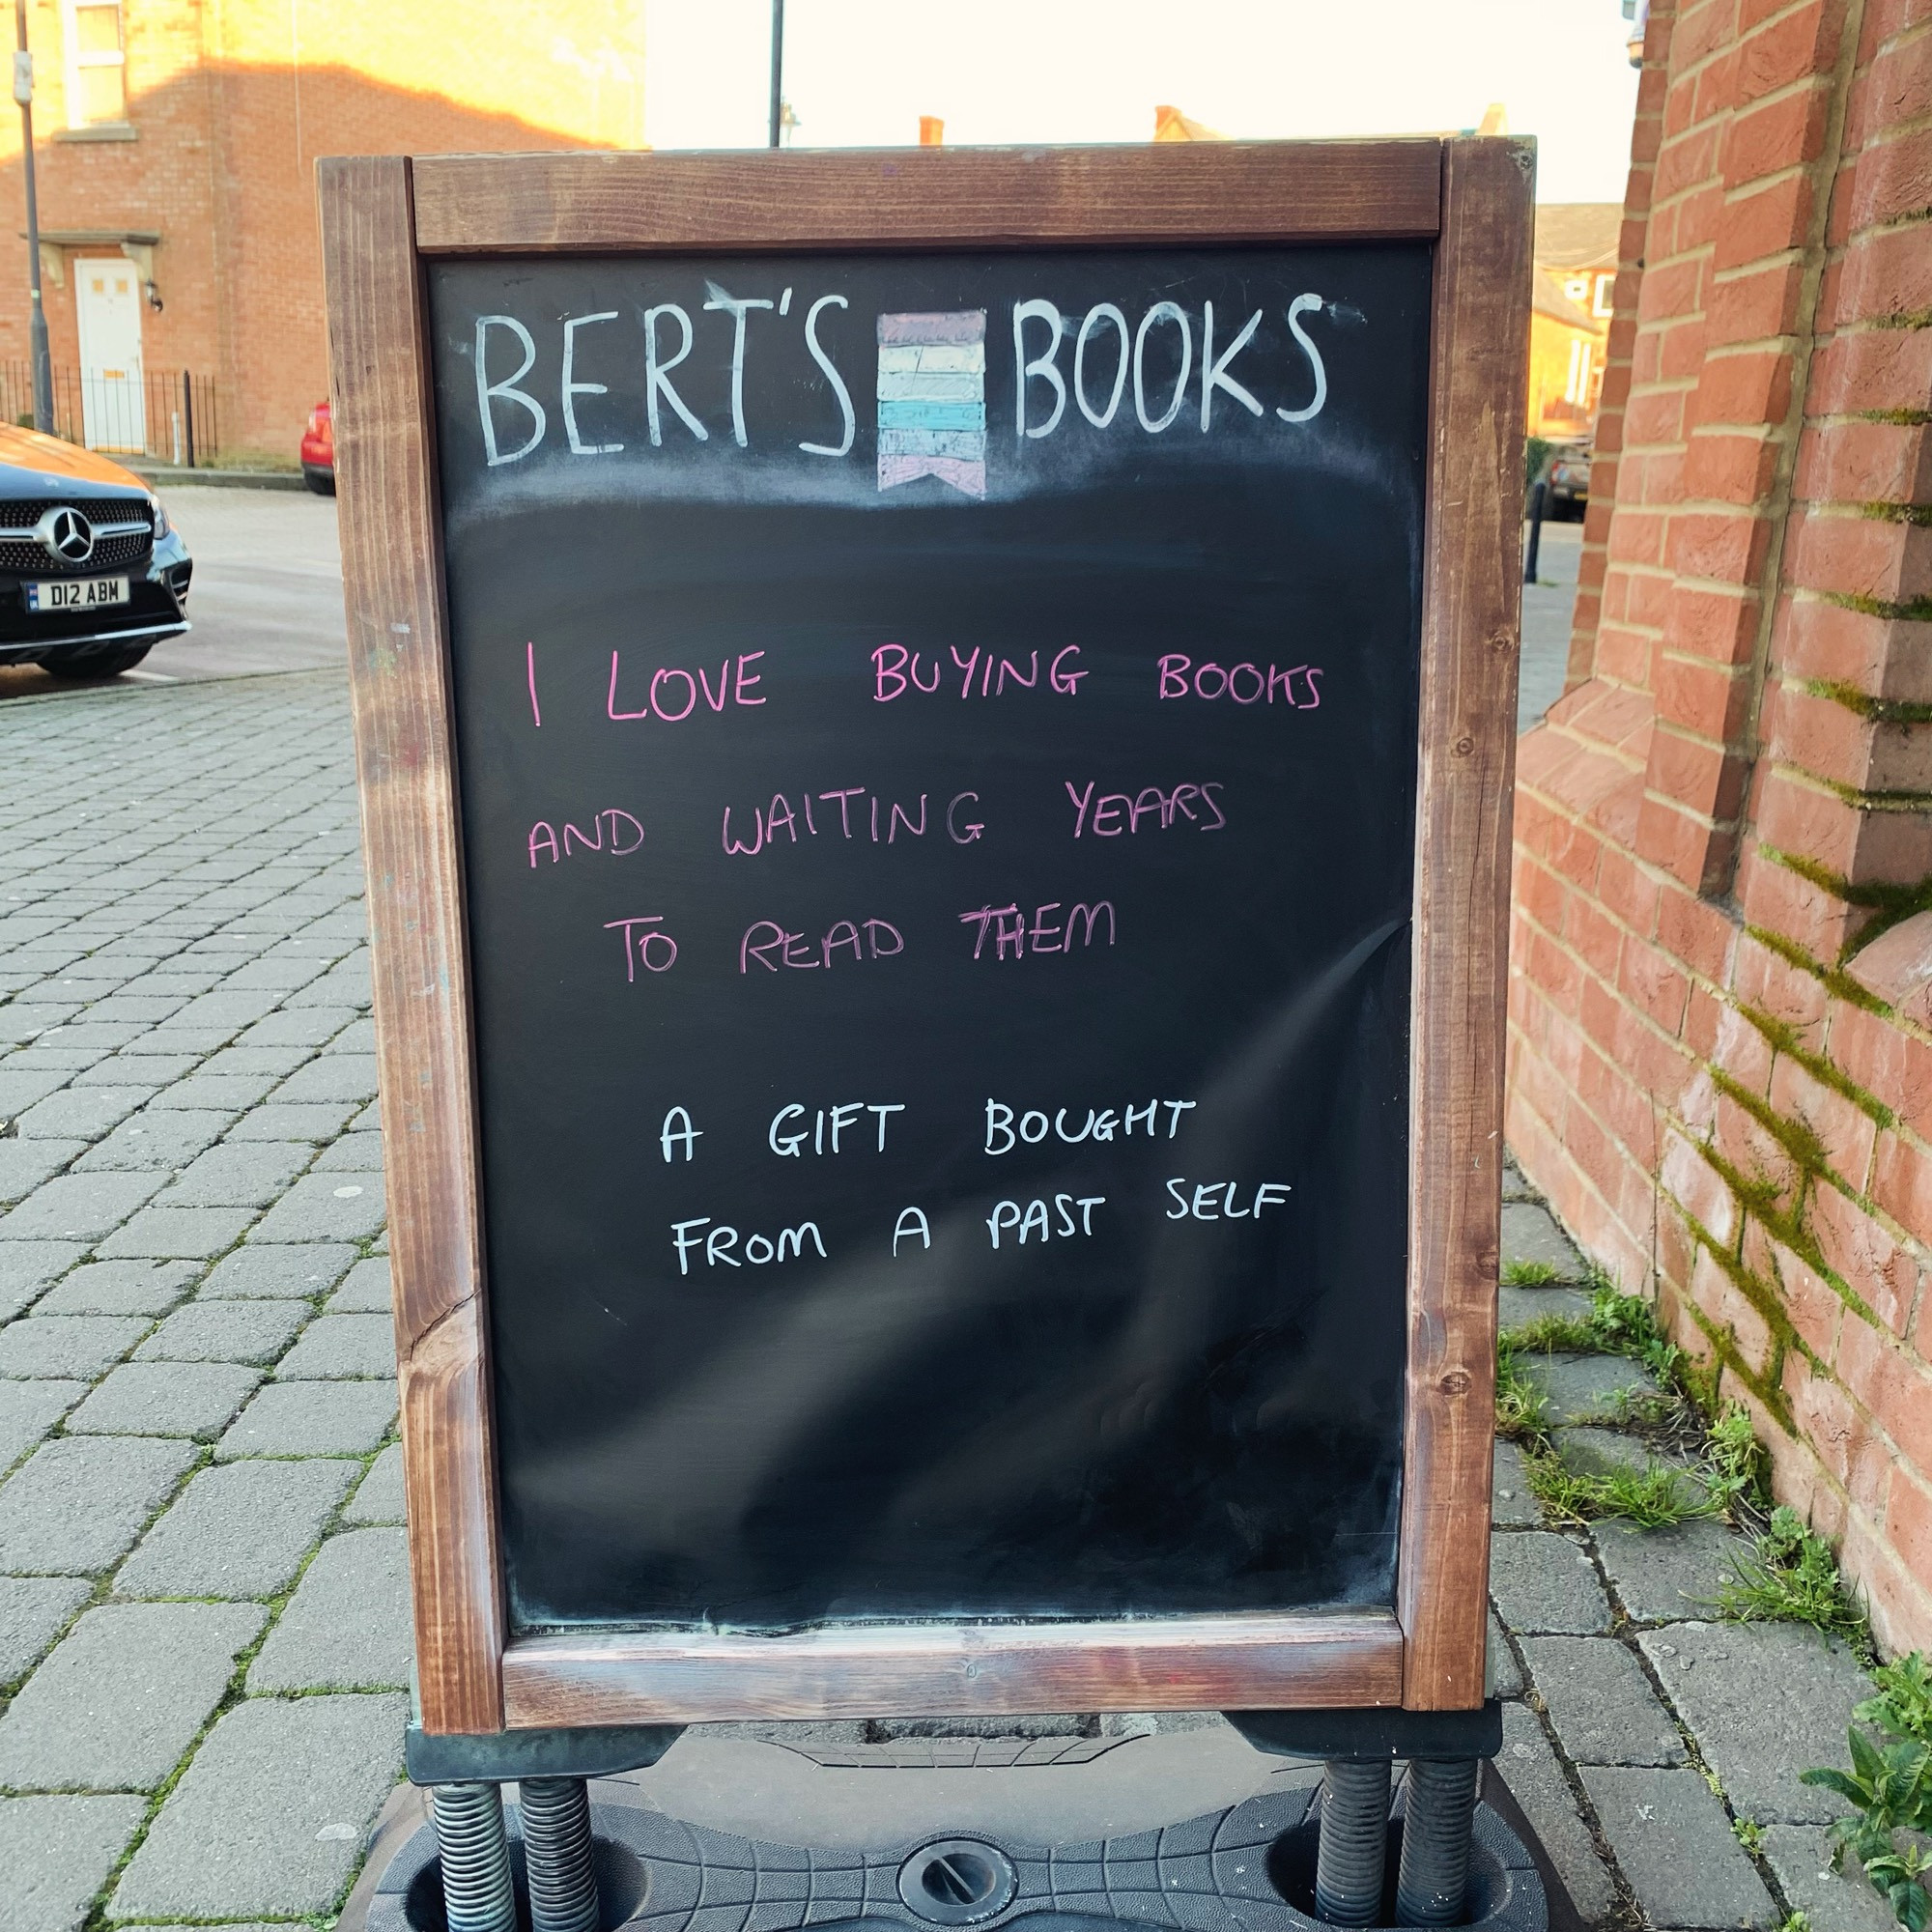 BERT'S BOOKS
I LOVE BUYING BOOKS
AND WAITING YEARS
TO READ THEM
A GIFT BOUGHT
FROM A PAST SELF
D12 ABM